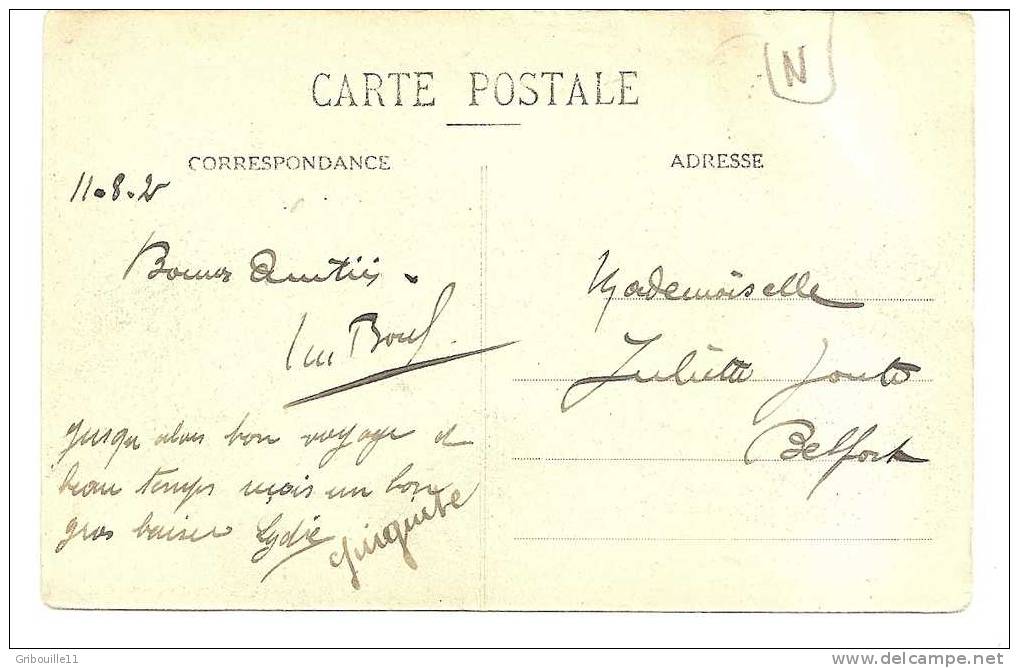 N
CARTE POSTALE
CORRESPONDANCE
11-8-2
Bonnes Amitiés.
jusqu alors bon voyage et
beau temps reçois un bon
gros baiser Lydie
ADRESSE
Mademoiselle
Juliette
Belfort
Gribouille11
delcampe.net